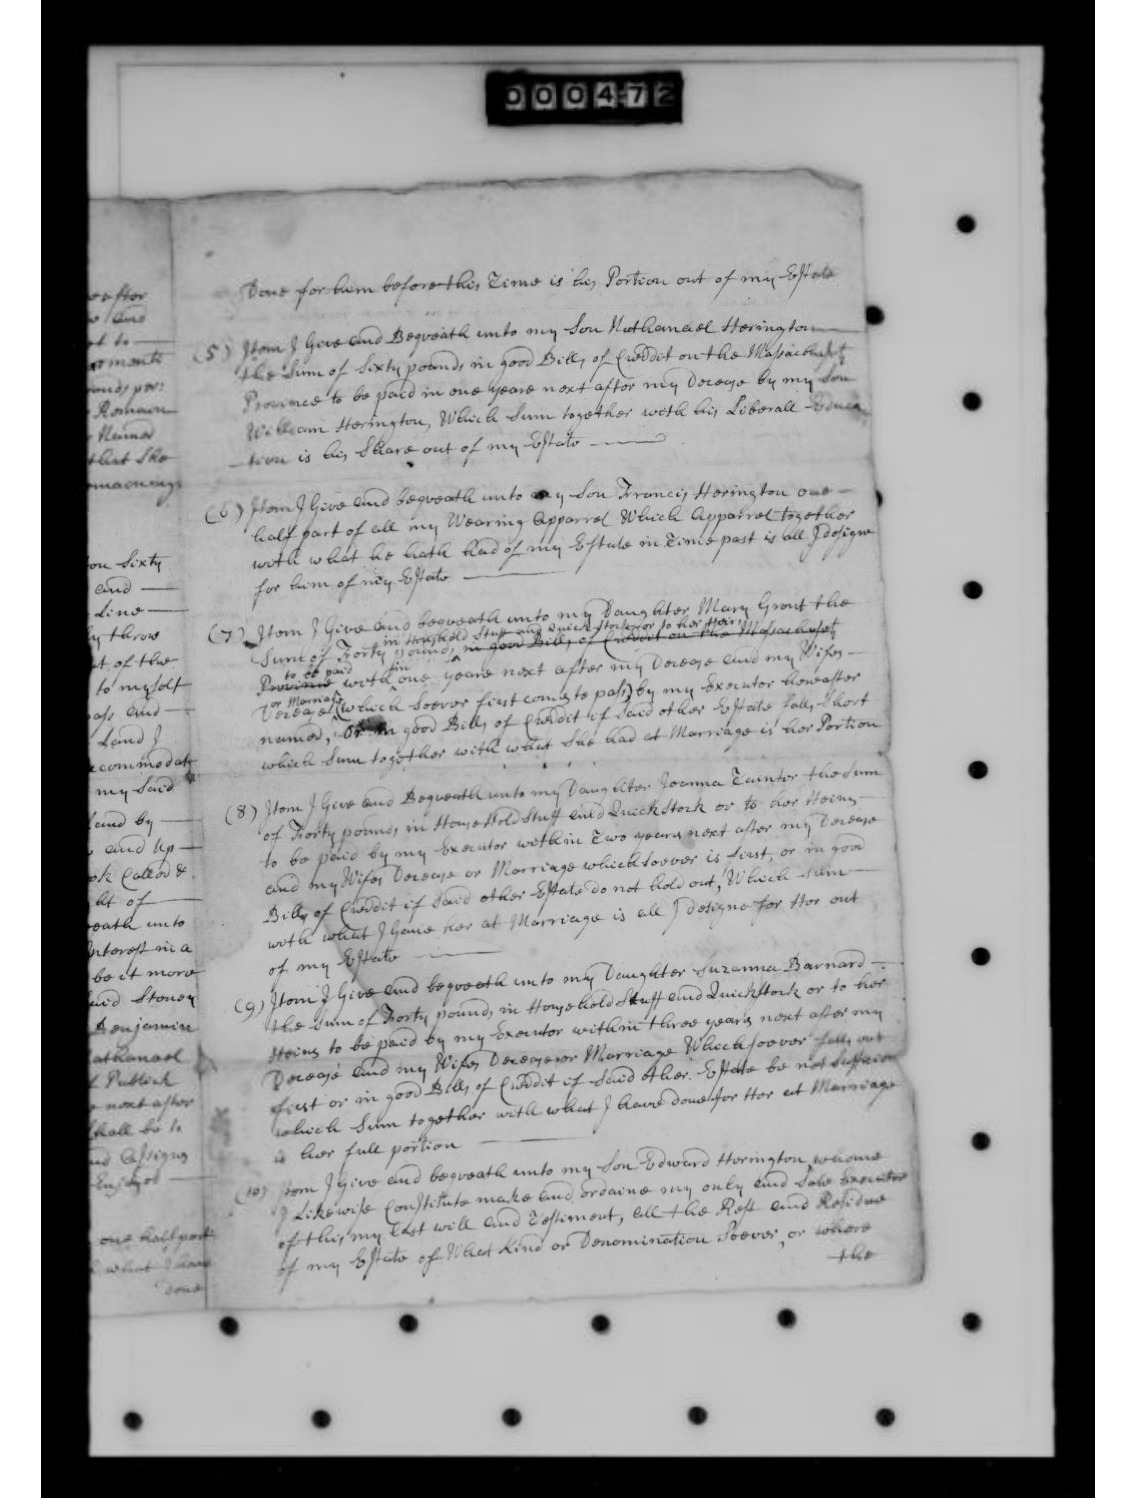 000472
eafter
e and
t to
rments
ounds per:
Remain
Named
that She
emaening
on Sixty
and
Line
by three
rt of the
to myself
pass and
Land I
ccommodat
my Said
and by
and Up
ok Called &
ht of
eath unto
nterest in a
be it more
aid Stoney
Benjamin
athanael
Publick
next after
Shall be to
nd Assigns
Enjoyed
one half part
what I have
done
Done for him before this Time is his Portion out of my Estate
(5) Item I Give and Beqveath unto my Son Nathanael Herington
the Sum of Sixty pounds in good Bills of Creddit on the Massachusets
Province to be paid in one yeare next after my Decease by my Son
William Herington, Which Sum together with his Liberall Educa
tion is his Share out of my Estate
(6) Item I Give and beqveath unto my Son Francis Herington one
half part of all my Wearing Apparrel Which Apparrel together
with what he hath had of my Estate in Time past is all I designe
for him of my Estate
(7) Item I Give and beqveath unto my Daughter Mary Grout the
in Household Stuff and Quick Stock or to her Heirs
Sum of Forty pounds, in good Bills of Creddit on the Massachusets
to be paid in
Province with one yeare next after my Decease and my Wifes
or Marriage
Decease (which Soever first comes to pass) by my Executor hereafter
named, or in good Bills of Creddit if Said other Estate falls Short
which Sum together with what She had at Marriage is her Portion
(8) Item I Give and Beqveath unto my Daughter Joanna Tainter the Sum
of Forty pounds in HouseHold Stuff and Quick Stock or to her Heirs
to be paid by my Executor within Two years next after my Decease
and my Wifes Decease or Marriage which Soever is first, or in good
Bills of Creddit if Said other Estate do not hold out, Which Sum
with what I Gave her at Marriage is all I designe for Her out
of my Estate
(9) Item I Give and beqveath unto my Daughter Suzanna Barnard
the Sum of Forty pounds in Household Stuff and Quick Stock or to her
Heirs to be paid by my Executor within three years next after my
Decease and my Wifes Decease or Marriage Which Soever falls out
first or in good Bills of Creddit if Said other Estate be not Sufficien
which Sum together with what I have done for Her at Marriage
is her full portion
(10) Item I Give and beqveath unto my Son Edward Herington whome
I Likewise Constitute make and ordaine my only and Sole Executor
of this my Last will and Testiment, all the Rest and Residue
of my Estate of What Kind or Denomination Soever, or where
the